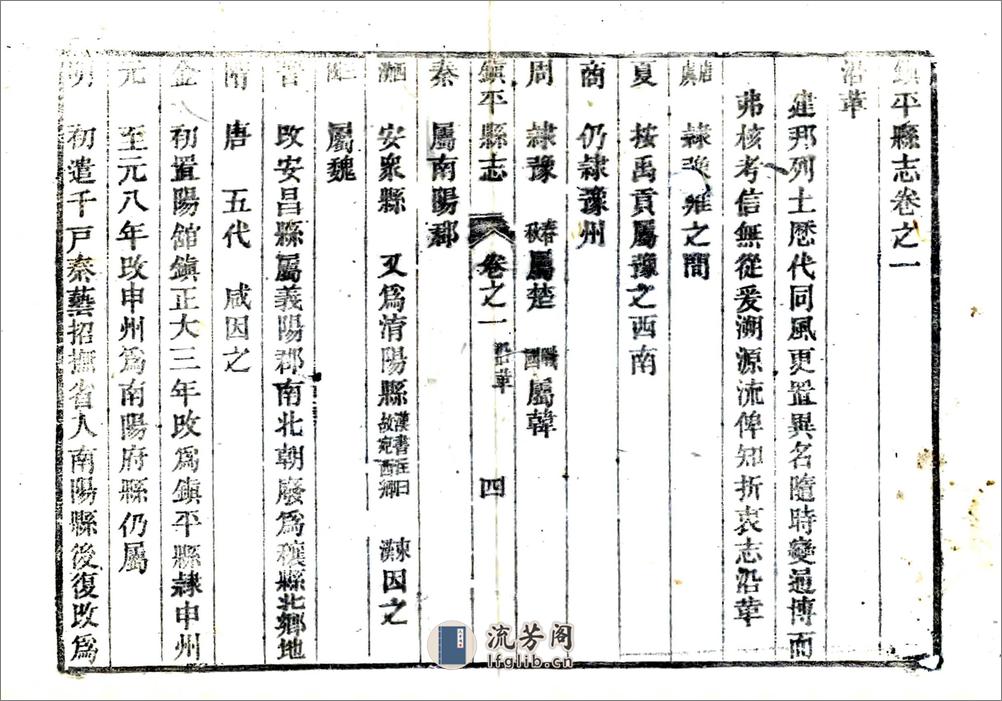 鎮平縣志卷之一
沿革
建邦列土歷代同風更置異名隨時變通博而
弗核考信無從爰溯源流俾知折衷志沿革
唐虞 隸豫雍之間
夏 按禹貢屬豫之西南
商 仍隸豫州
周 隸豫 春秋屬楚 戰國屬韓
鎮平縣志 卷之一 沿革 四
秦 屬南陽郡
西漢 安衆縣 又爲淯陽縣 漢書注曰故宛西鄉 東漢因之
三國 屬魏
晉 改安昌縣屬義陽郡南北朝廢爲穰縣北鄉地
隋 唐 五代 咸因之
金 初置陽館鎮正大三年改爲鎮平縣隸申州
元 至元八年改申州爲南陽府縣仍屬
明 初遣千戸秦藝招撫省入南陽縣後復改爲
流芳阁
lfglib.cn